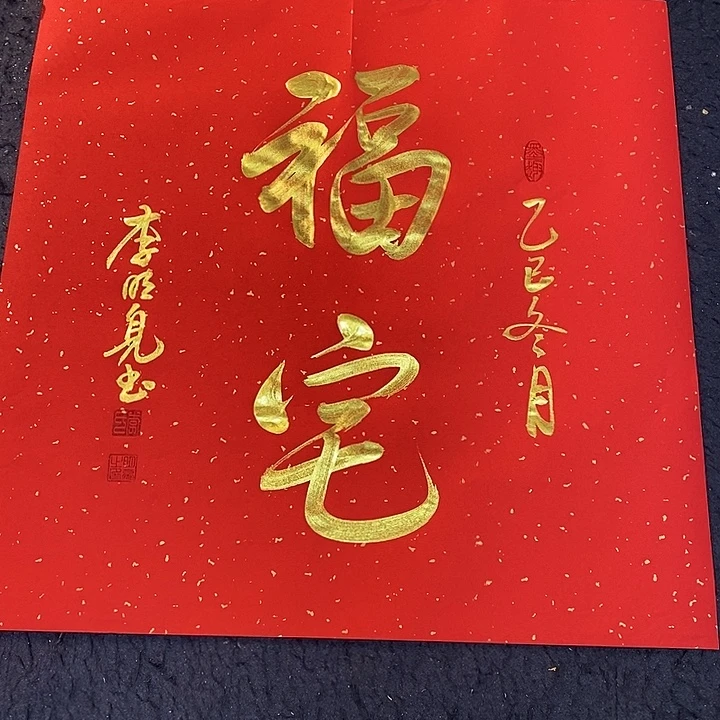 福宅
乙巳冬月
李明見书